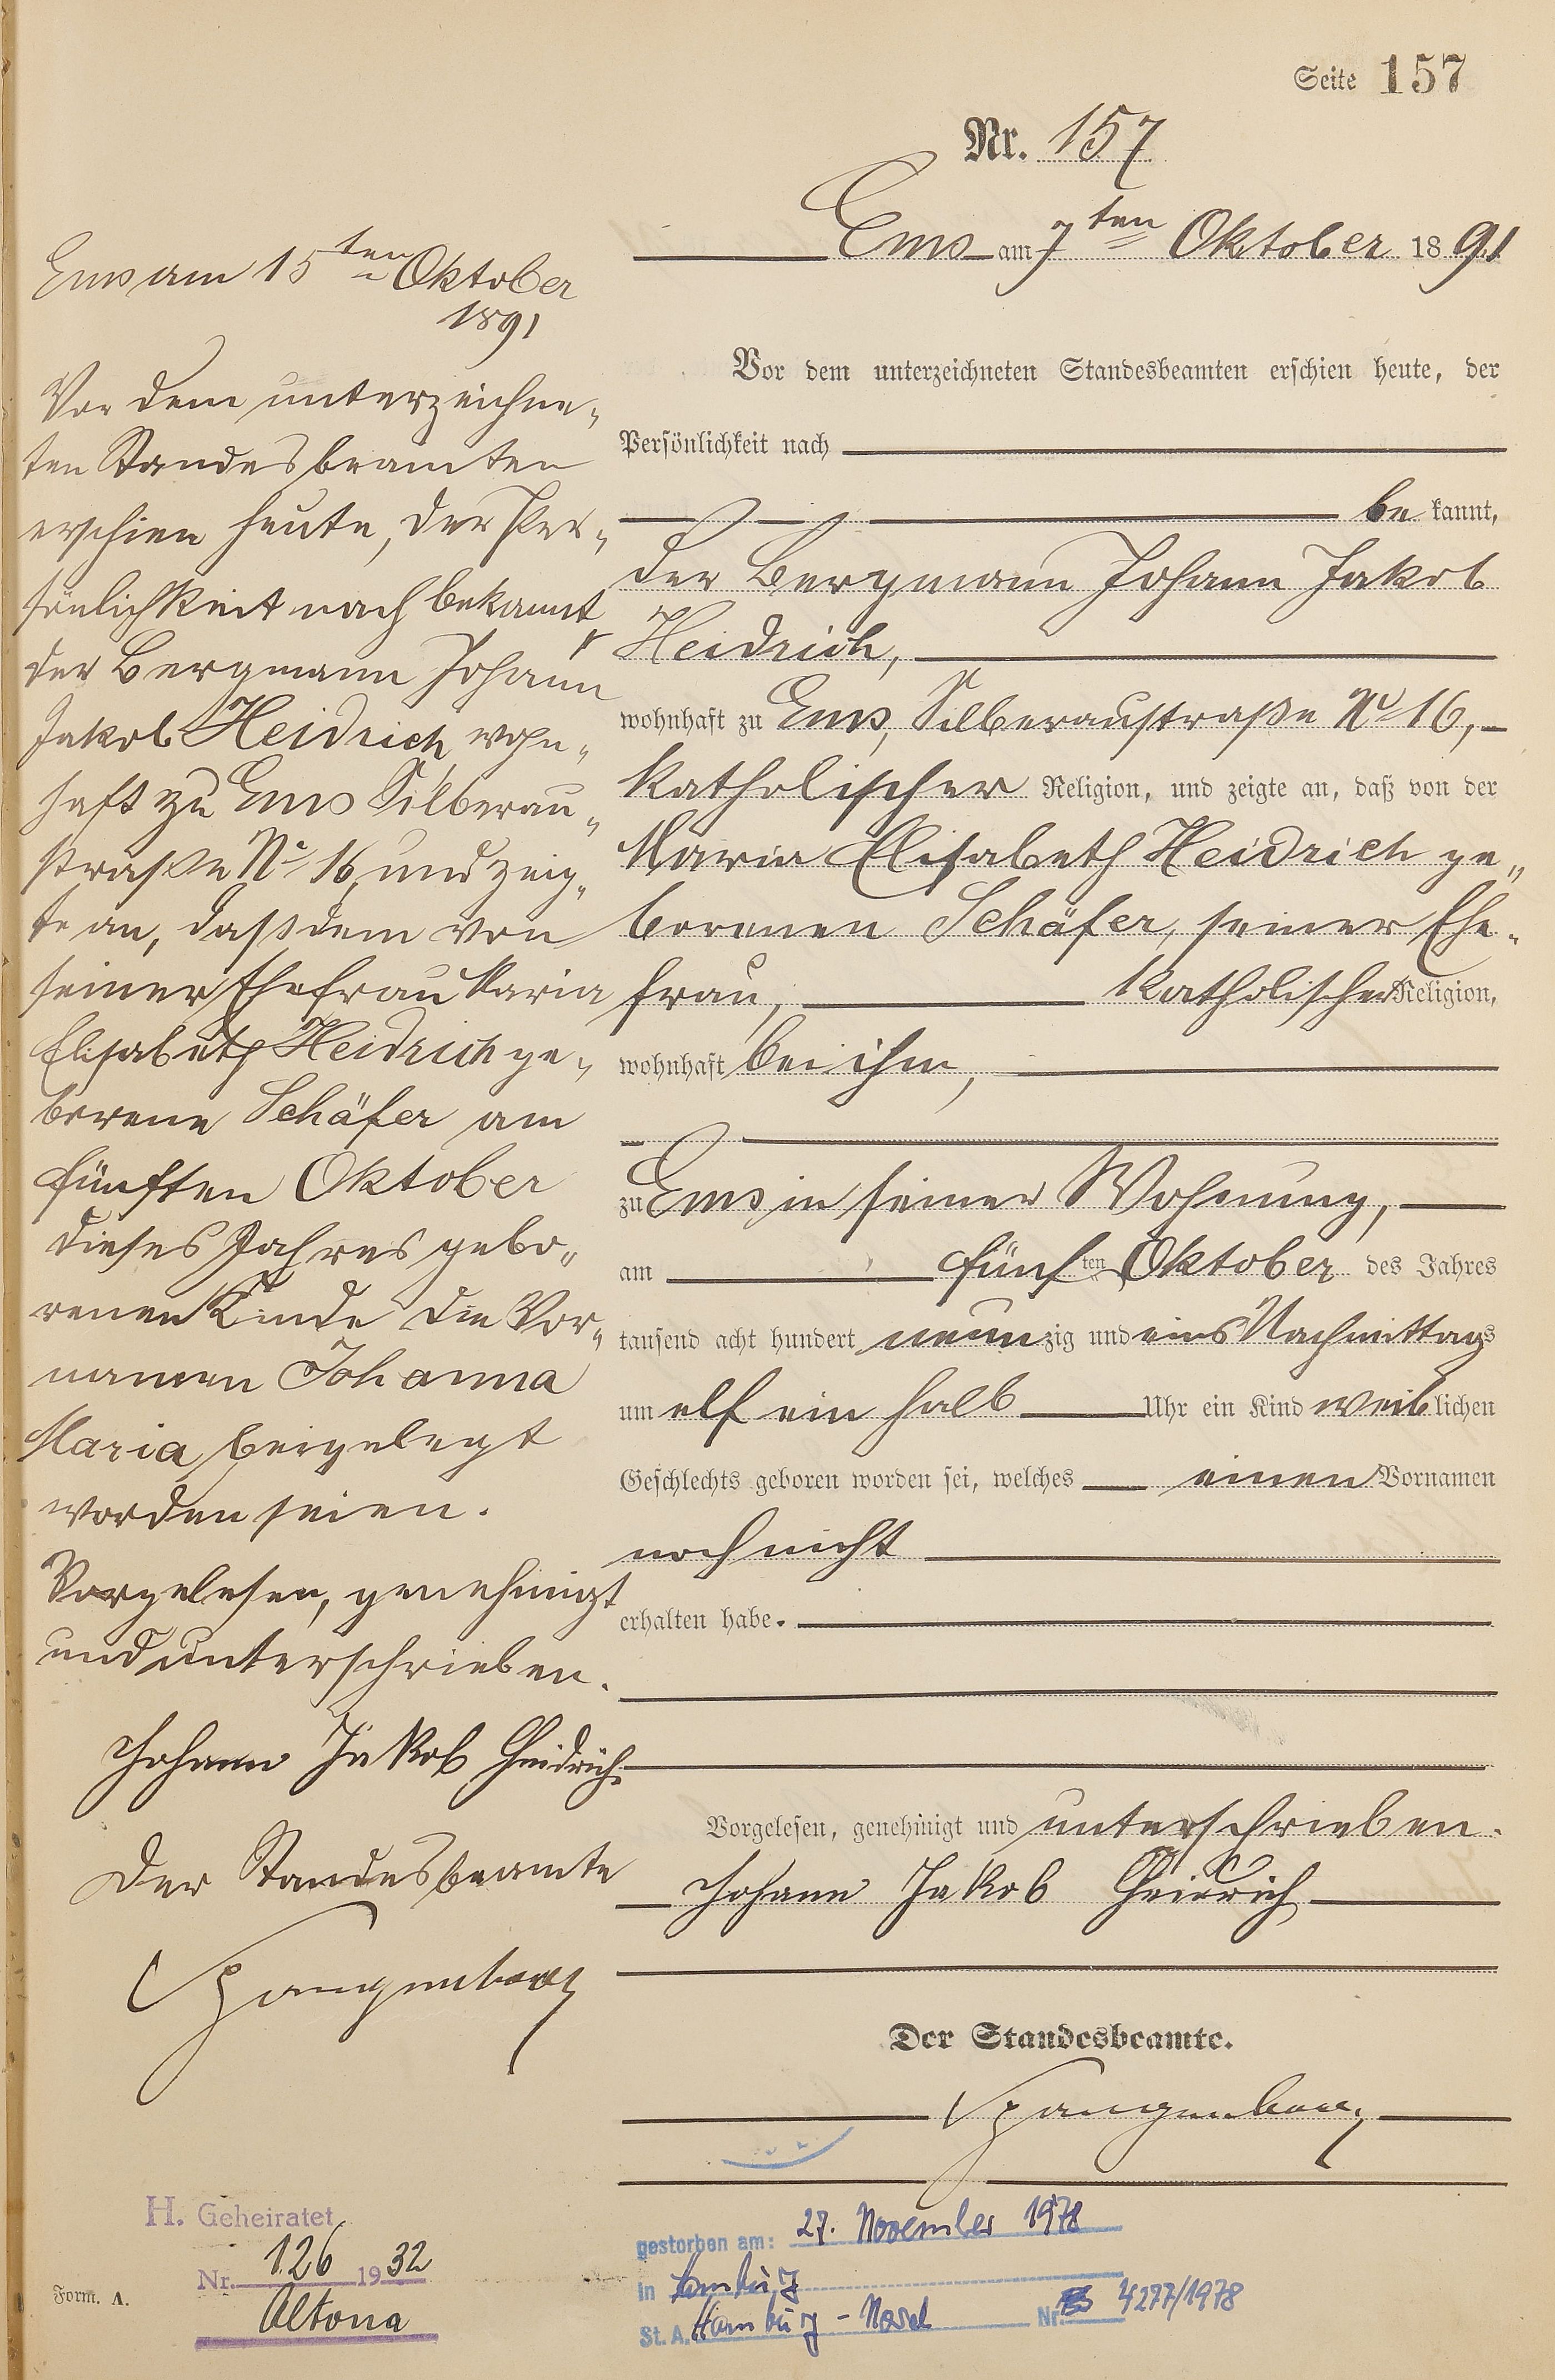 Seite 157
Nr. 157
Ems am 7ten Oktober 1891
Vor dem unterzeichneten Standesbeamten erschien heute, der
Persönlichkeit nach
be kannt,
der Bergmann Johann Jakob
Heidrich,
wohnhaft zu Ems, Silberaustraße No 16,
katholischer Religion, und zeigte an, daß von der
Maria Elisabeth Heidrich ge„
borenen Schäfer, seiner Ehe„
frau, katholischer Religion,
wohnhaft bei ihm,
zu Ems in seiner Wohnung,
am fünften Oktober des Jahres
tausend acht hundert neunzig und eins Nachmittags
um elf ein halb Uhr ein Kind weiblichen
Geschlechts geboren worden sei, welches einen Vornamen
noch nicht
erhalten habe.
Vorgelesen, genehmigt und unterschrieben.
Johann Jakob Heidrich
Der Standesbeamte.
Ems am 15ten Oktober
1891
Vor dem unterzeichne„
ten Standesbeamten
erschien heute, der Per„
sönlichkeit nach bekannt,
der Bergmann Johann
Jakob Heidrich, wohn„
haft zu Ems Silberau„
straße No 16, und zeig„
te an, daß dem von
seiner Ehefrau Maria
Elisabeth Heidrich ge„
borene Schäfer am
fünften Oktober
dieses Jahres gebo„
renen Kinde die Vor„
namen Johanna
Maria beigelegt
worden seien.
Vorgelesen, genehmigt
und unterschrieben.
Johann Jakob Heidrich.
Der Standesbeamte
H. Geheiratet
Nr. 126 1932
Altona
Form. A.
gestorben am: 27. November 1978
in Hamburg
St. A. Hamburg - Nr. 4277/1978